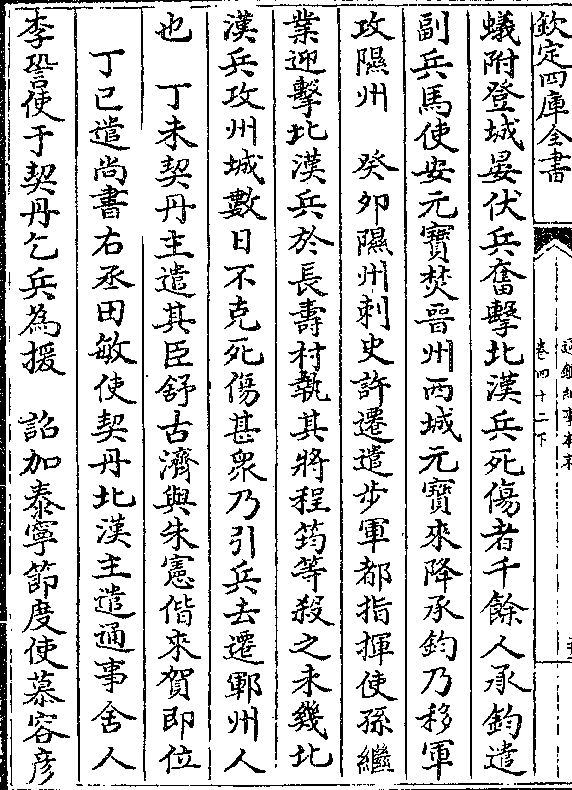 欽定四庫全書
通鑑紀事本末
卷四十二下
蟻附登城晏伏兵奮擊北漢兵死傷者千餘人承鈞遣
副兵馬使安元寶焚晉州西城元寶來降承鈞乃移軍
攻隰州　癸卯隰州刺史許遷遣步軍都指揮使孫繼
業迎擊北漢兵於長壽村執其將程筠等殺之未幾北
漢兵攻州城數日不克死傷甚衆乃引兵去遷鄆州人
也　丁未契丹主遣其臣舒古濟與朱憲偕來賀即位
丁巳遣尚書右丞田敏使契丹北漢主遣通事舍人
李𧦬使于契丹乞兵為援　詔加泰寧節度使慕容彦